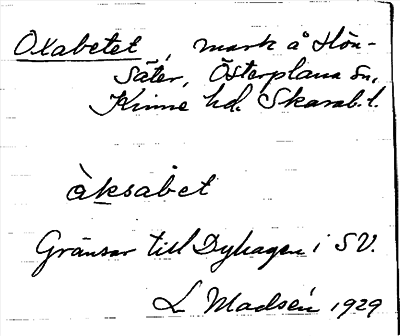 Oxabetet, mark å Hön-
säter, Österplana sn,
Kinne hd. Skarab. l.
àksabet
Gränsar till Dyhagen i SV.
L. Madsén 1929